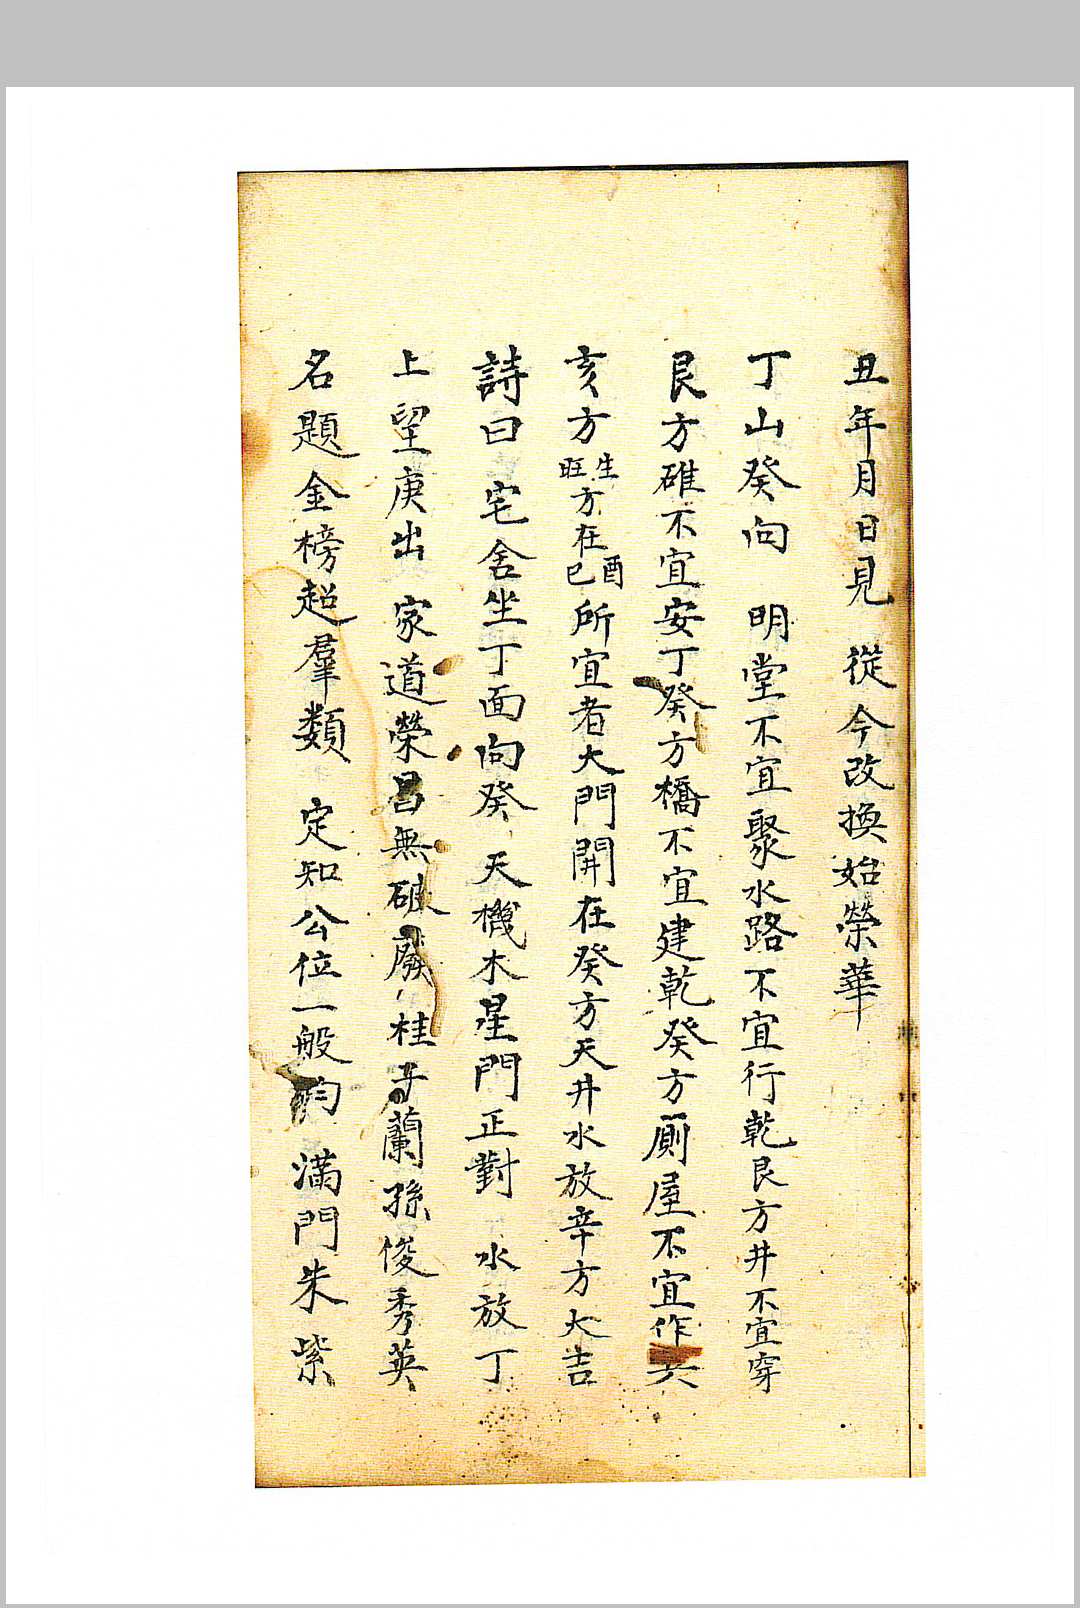 丑年月日見 從今改換始榮華
丁山癸向 明堂不宜聚水路不宜行乾艮方井不宜穿
艮方碓不宜安丁癸方橋不宜建乾癸方廁屋不宜作六
亥方生旺方在酉巳所宜者大門開在癸方天井水放辛方大吉
詩曰宅舍坐丁面向癸 天機木星門正對 水放丁
上望庚出 家道榮昌無破廢 桂子蘭孫俊秀英
名題金榜超羣類 定知公位一般均 滿門朱紫